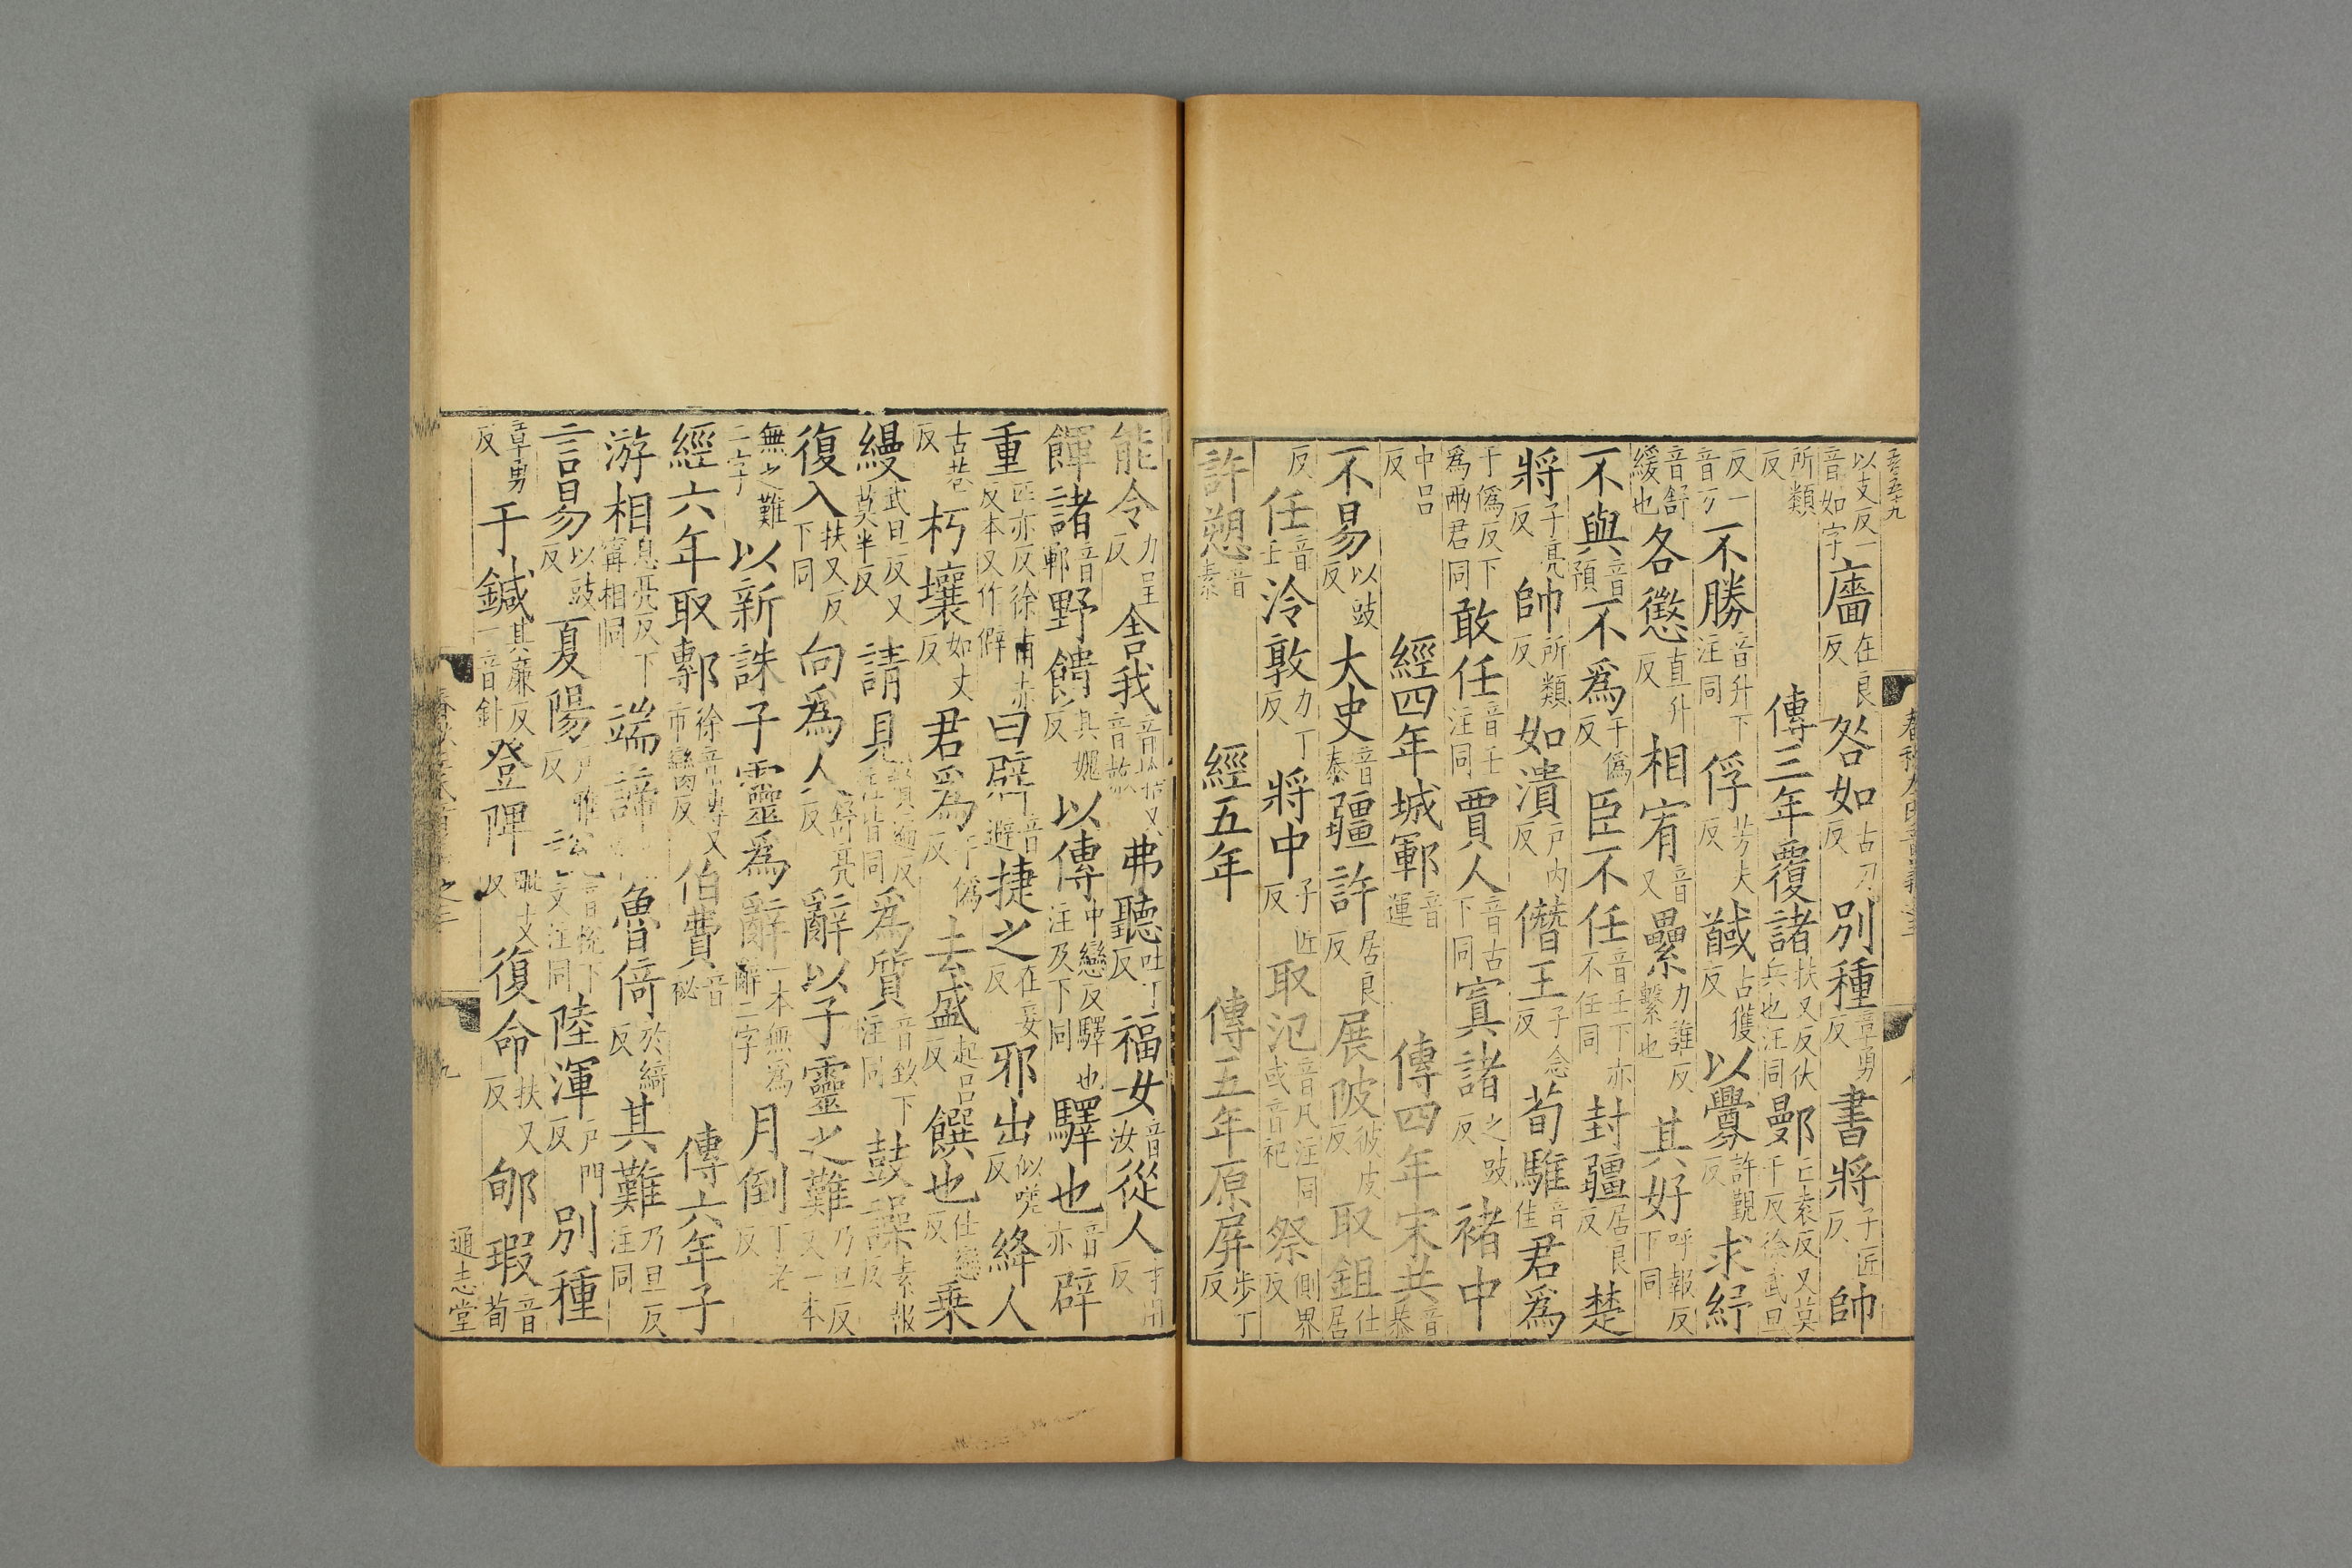 以支反一音如字廧在良反咎如古刀反別種章勇反書將子匠反帥
所類反 傳三年覆諸扶又反伏兵也注同鄤亡袁反又莫干反徐武旦
反一音万不勝音升下注同俘芳夫反馘古獲反以釁許覲反求紓
音舒緩也各懲直升反相宥音又纍力誰反繫也其好呼報反下同
不與音預不爲于僞反臣不任音壬下不任同亦封疆居良反楚
將子亮反帥所類反如潰戶內反僭王子念反荀騅音佳君爲
于僞反下爲兩君同敢任音壬注同賈人音古下同寘諸之豉反褚中
中呂反 經四年城鄆音運 傳四年宋共音恭
不易以豉反大史音泰疆許居良反展陂彼皮反取鉏仕居
反任音壬泠敦力丁反將中子匠反取氾音凡注同或音祀祭側界反
許愬音素 經五年 傳五年原屏步丁反
能令力呈反舍我音捨又音赦弗聽吐丁反福女音汝從人才用反
餫諸音鄆野饋其媿反以傳中戀反驛也注及下同驛也音亦辟
重匹亦反徐甫赤反本又作僻曰辟音避捷之在妾反邪出似嗟反絳人
古巷反朽壤如丈反君爲于僞反去盛起呂反饌也仕戀反乗
縵武旦反又莫半反請見賢遍反注皆同爲質音致下注同鼓譟素報反
復入扶又反下同向爲人舒亮反辭以子靈之難乃旦反又一本
無之難二字以新誅子靈爲辭一本無爲辭二字月倒丁老反
經六年取鄟徐音專又市臠反伯費音祕 傳六年子
游相息亮反下甯相同端諦魚倚於綺反其難乃旦反注同
言易以豉反夏陽戶雅反說音悅下文注同陸渾戶門反別種
章勇反于鍼其廉反一音針登陴毗支反復命扶又反郇瑕音荀
通志堂